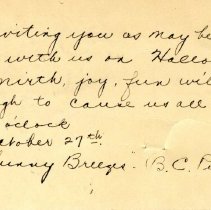 viting you as may be
with us on Hallo
mirth, joy, fun wil
gh to cause us all
o'clock
ctober 27th.
unny Breezes" B.C. Pe